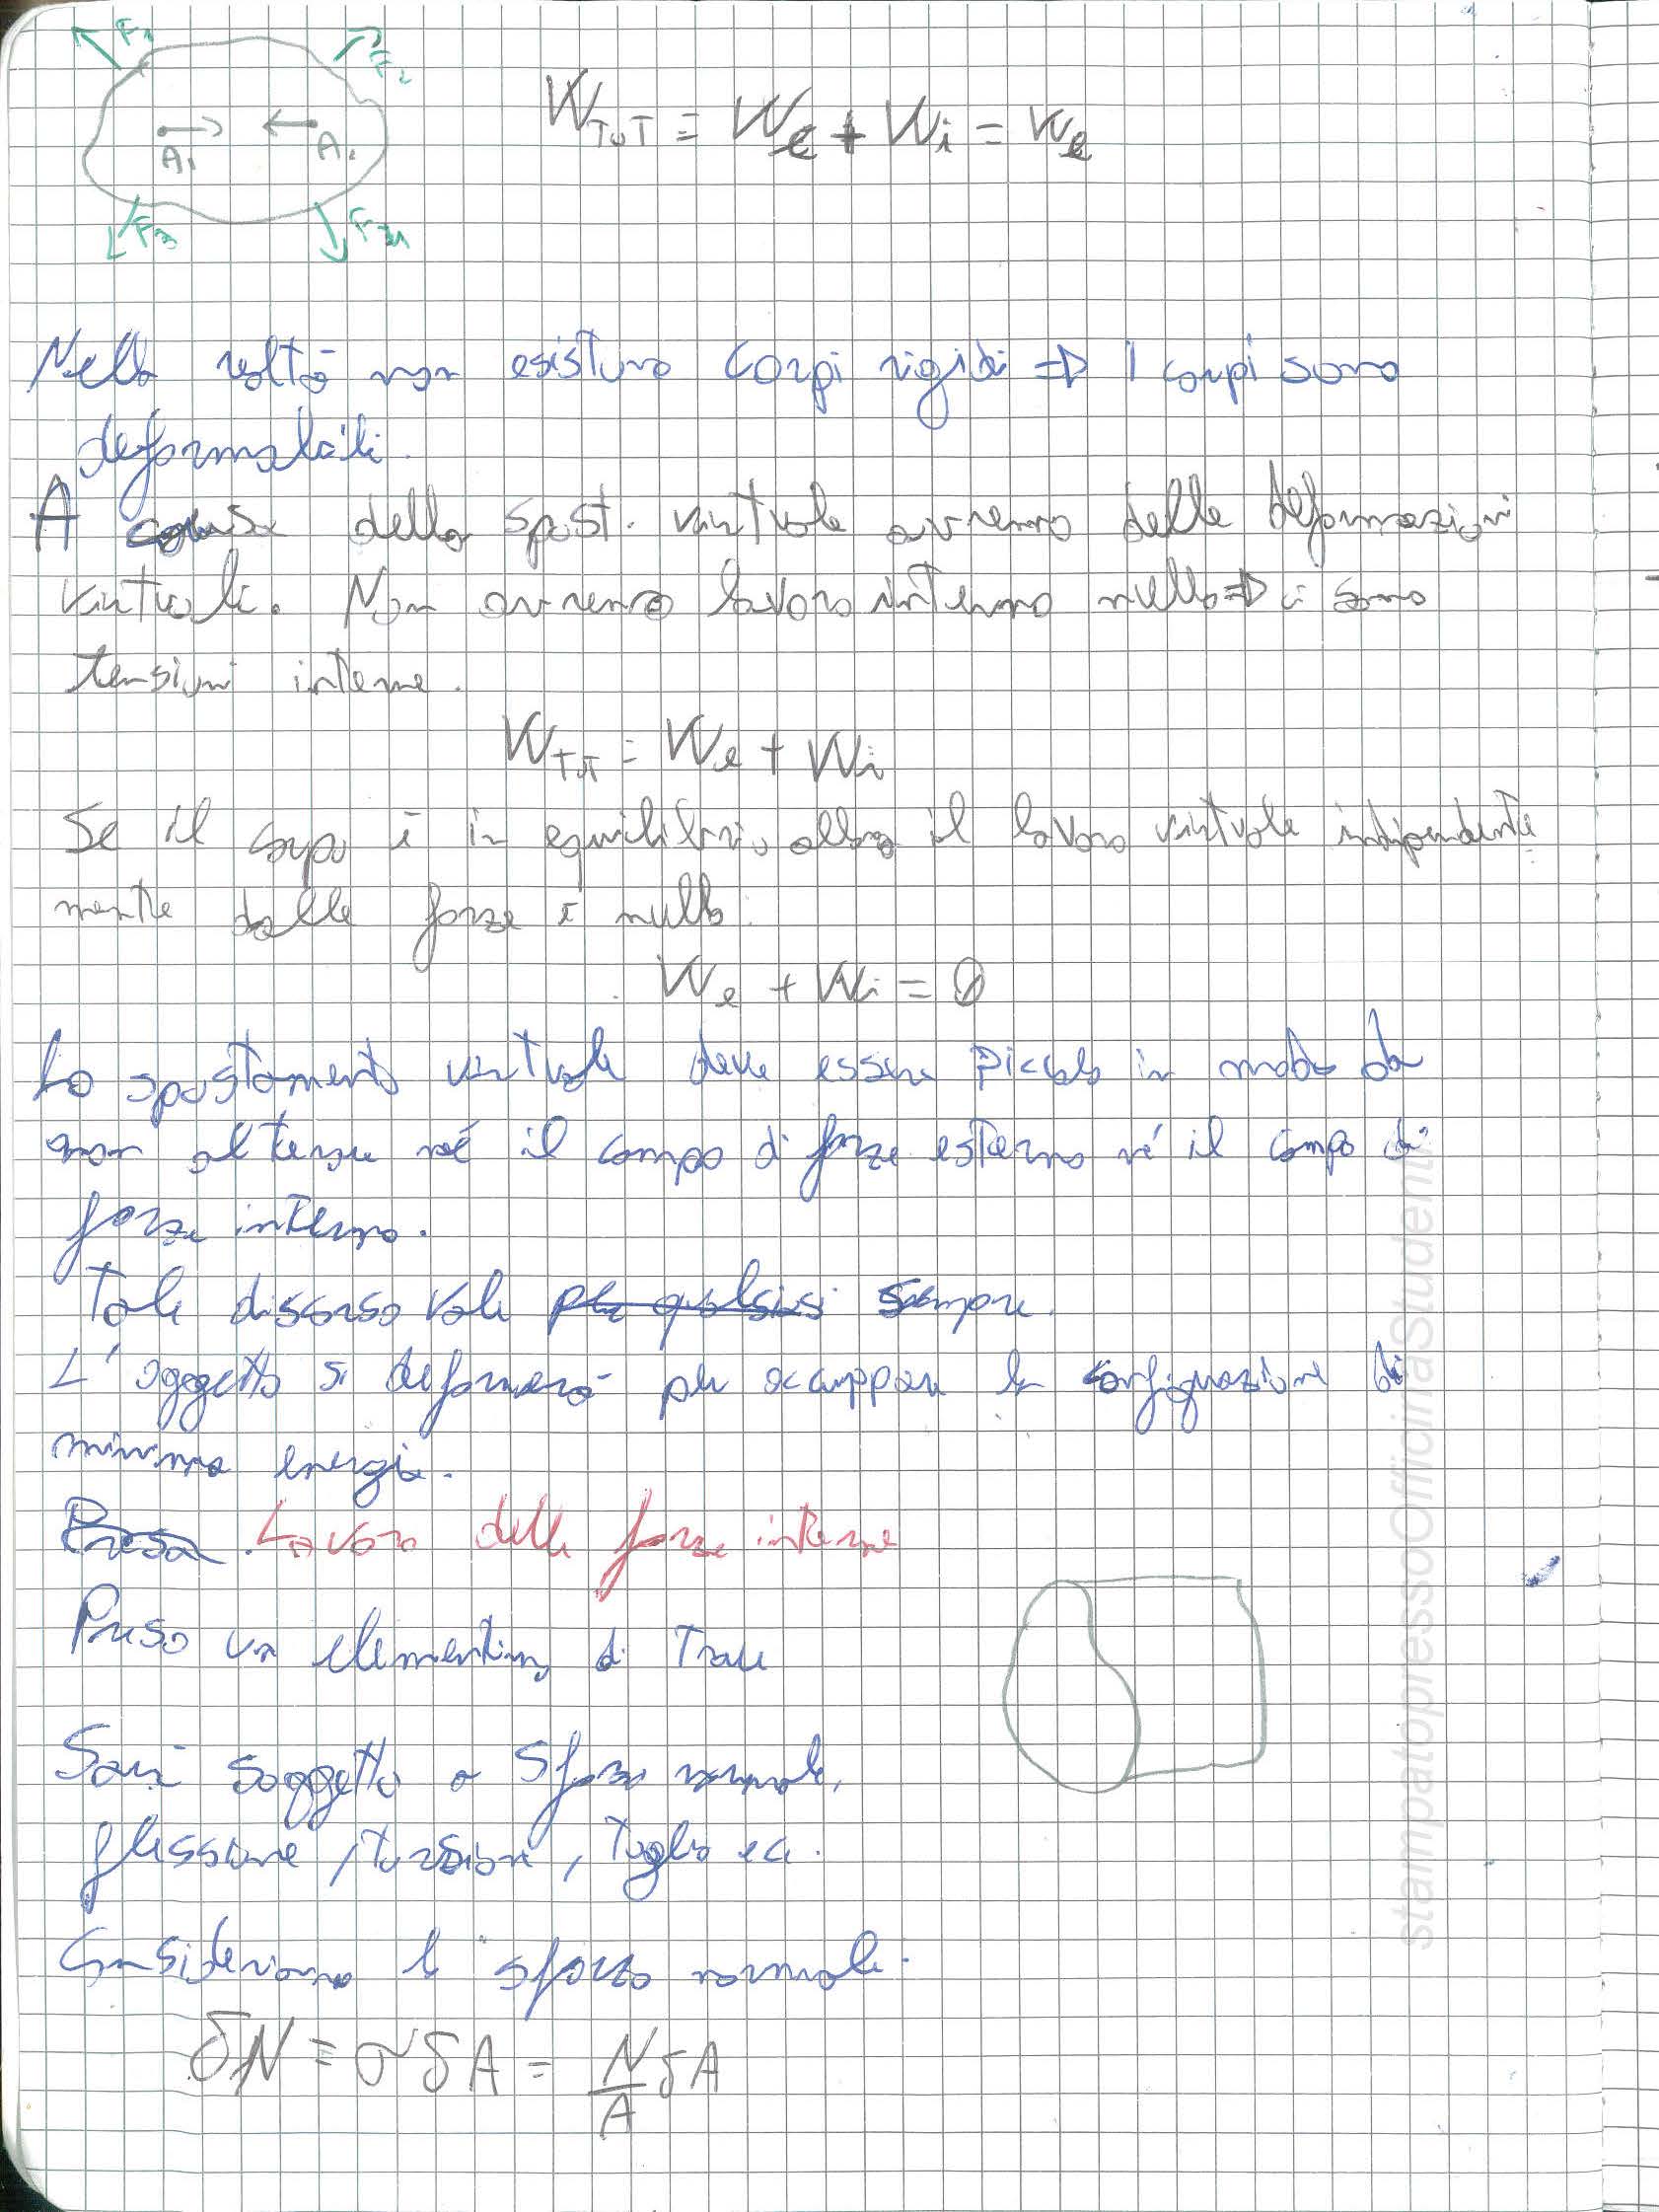 F₁ F₂
A₁ A₂
F₃
W_TOT = W_e + W_i = W_e
Nella realtà non esistono corpi rigidi => I corpi sono
deformabili.
A causa dello spost. virtuale avremo delle deformazioni
virtuali. Non avremo lavoro interno nullo => ci sono
tensioni interne.
W_TOT = W_e + W_i
Se il corpo è in equilibrio allora il lavoro virtuale indipendente
mente dalle forze è nullo.
W_e + W_i = 0
Lo spostamento virtuale deve essere piccolo in modo da
non alterare né il campo di forze esterno né il campo di
forze interno.
Tale discorso vale per qualsiasi sempre.
L'oggetto si deformerà per occuppare la configurazione di
minima energia.
Presa Lavoro delle forze interne
Preso un elementino di Trave
Sarà soggetto a sforzo normale,
flessione, torsione, taglio ec.
Consideriamo lo sforzo normale.
δN = σ δA = N/A δA
stampatopressoOfficinaStudenti